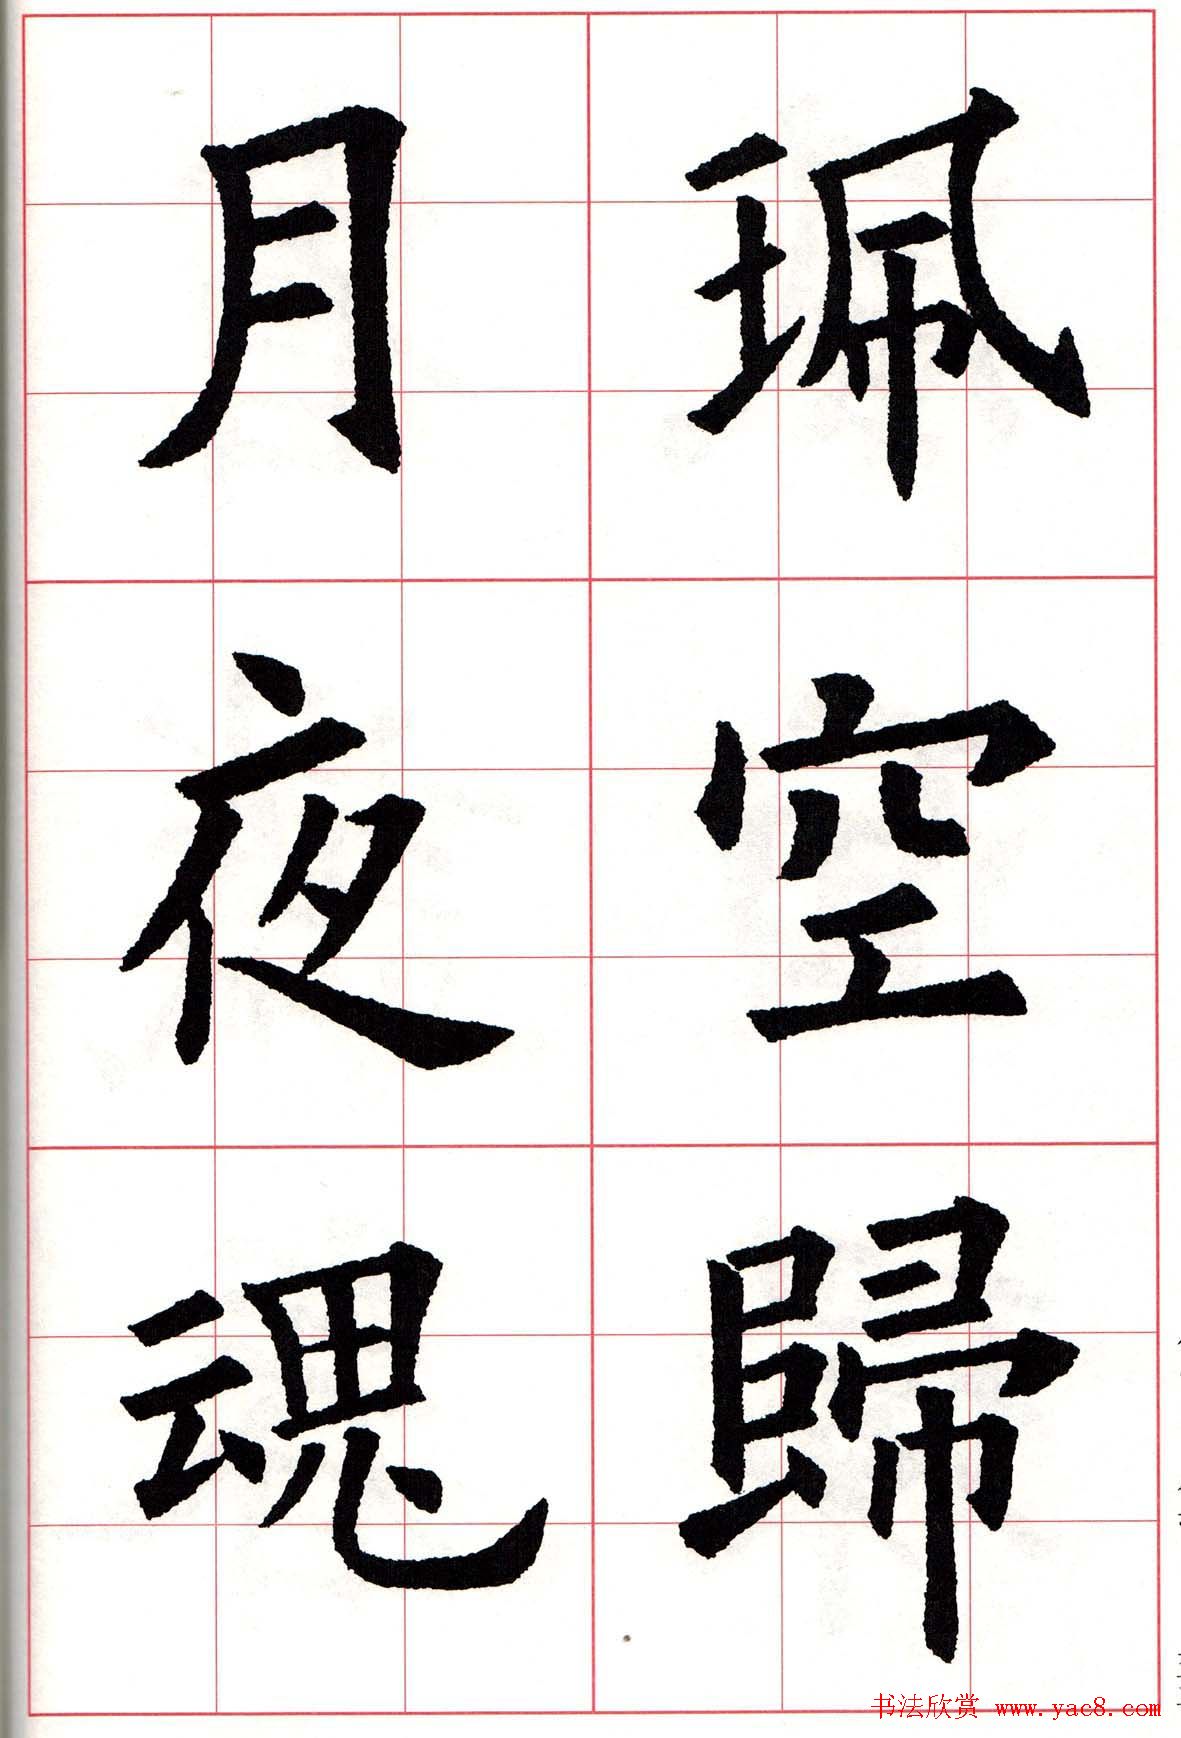 珮空歸
月夜魂
书法欣赏 www.yac8.com